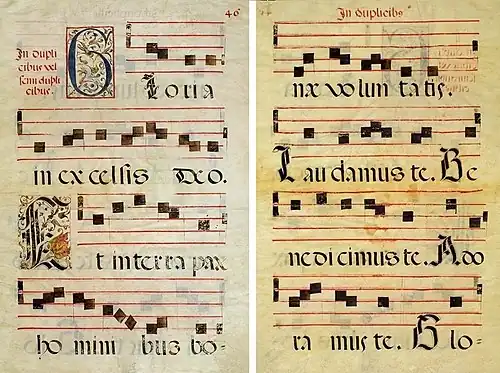 46
In dupli
cibus vel
semi dupli
cibus.
Gloria
in excelsis Deo.
Et in terra pax
ho mini bus bo-
In duplicibs
nx volun tatis.
Lau damus te. Be
ne di cimus te. Ado
ra mus te. Glo-